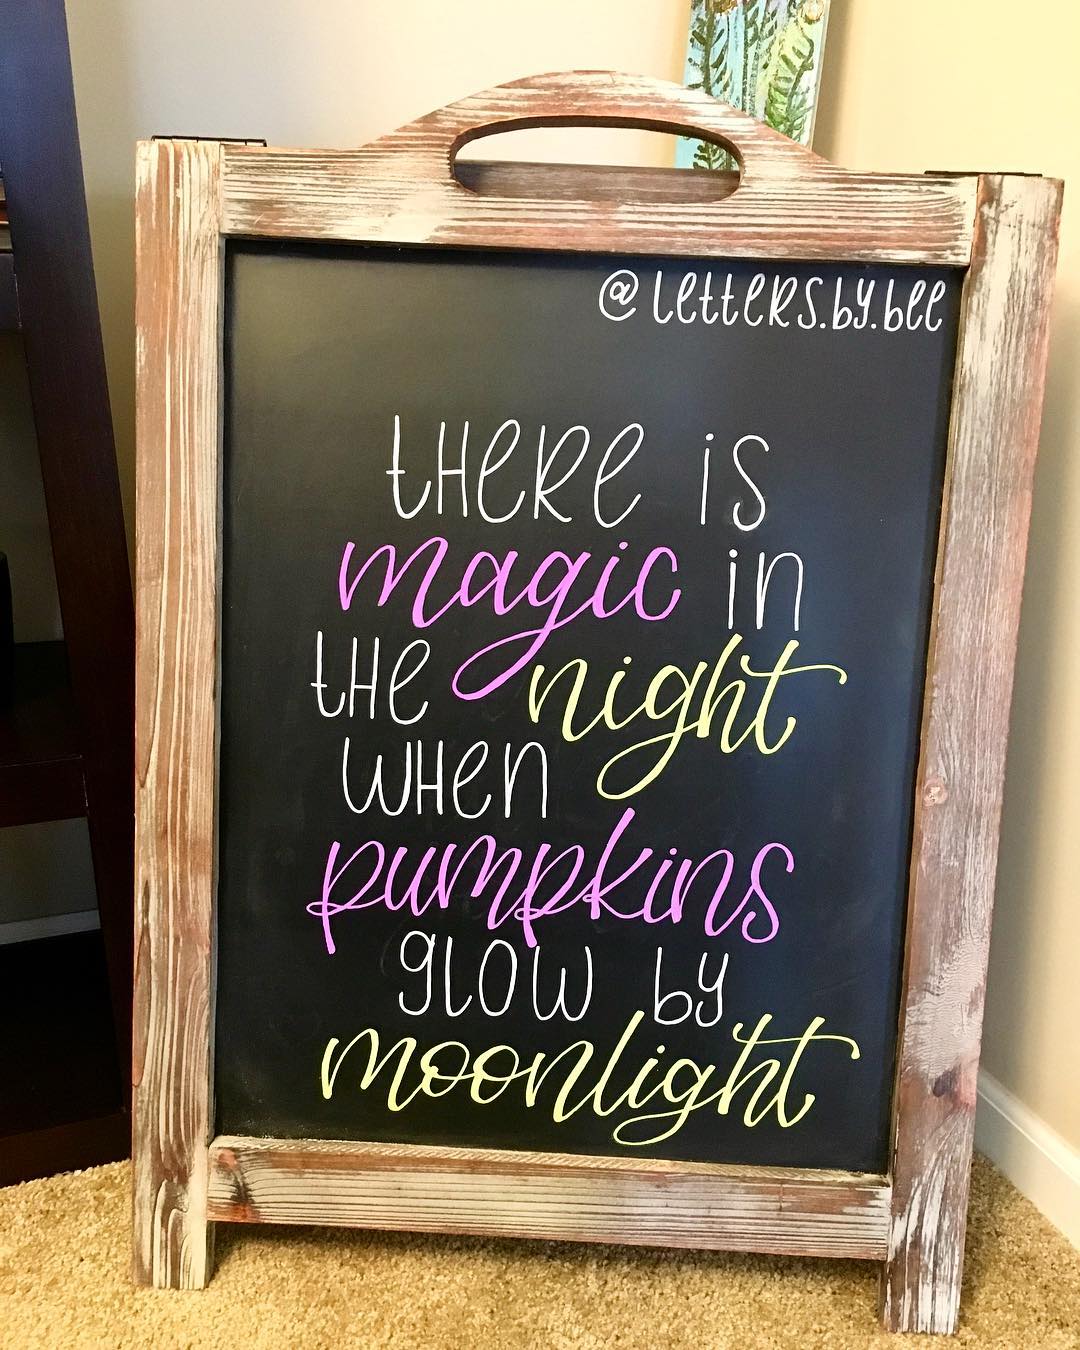 @letters.by.bee
there is
magic in
the night
when
pumpkins
glow by
moonlight